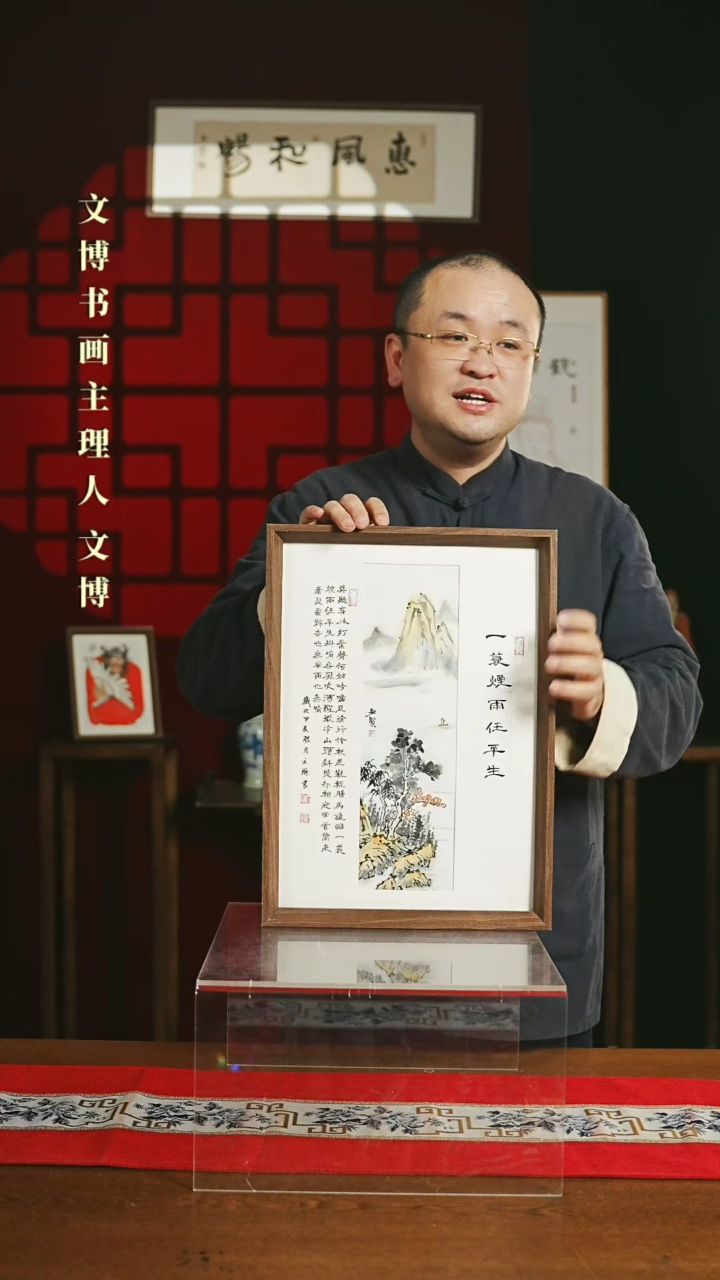 惠風和暢
文博书画主理人文博
一蓑煙雨任平生
莫聽穿林打葉聲何妨吟嘯且徐行竹杖芒鞋輕勝馬誰怕一蓑
煙雨任平生料峭春風吹酒醒微冷山頭斜照却相迎回首向來
蕭瑟處歸去也無風雨也無晴
歲次甲辰 月 書